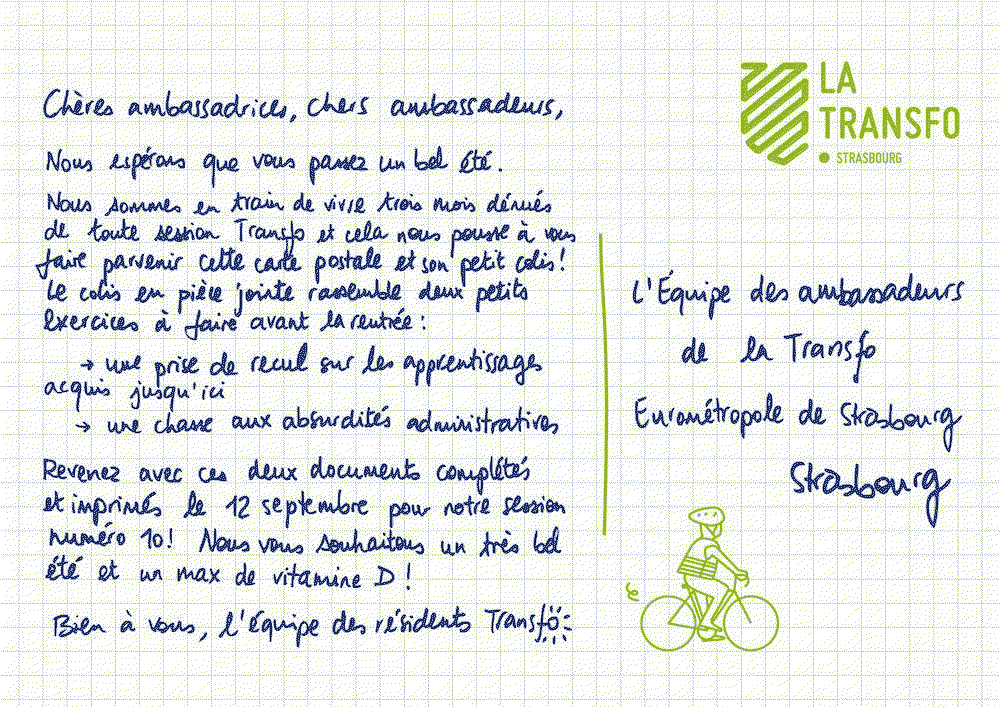 Chères ambassadrices, chers ambassadeurs,
Nous espérons que vous passez un bel été.
Nous sommes en train de vivre trois mois dénués
de toute session Transfo et cela nous pousse à vous
faire parvenir cette carte postale et son petit colis!
Le colis en pièce jointe rassemble deux petits
exercices à faire avant la rentrée :
→ une prise de recul sur les apprentissages
acquis jusqu'ici
→ une chasse aux absurdités administratives
Revenez avec ces deux documents complétés
et imprimés le 12 septembre pour notre session
numéro 10! Nous vous souhaitons un très bel
été et un max de vitamine D!
Bien à vous, l'équipe des résidents Transfo
LA
TRANSFO
STRASBOURG
L'Équipe des ambassadeurs
de la Transfo
Eurométropole de Strasbourg
Strasbourg